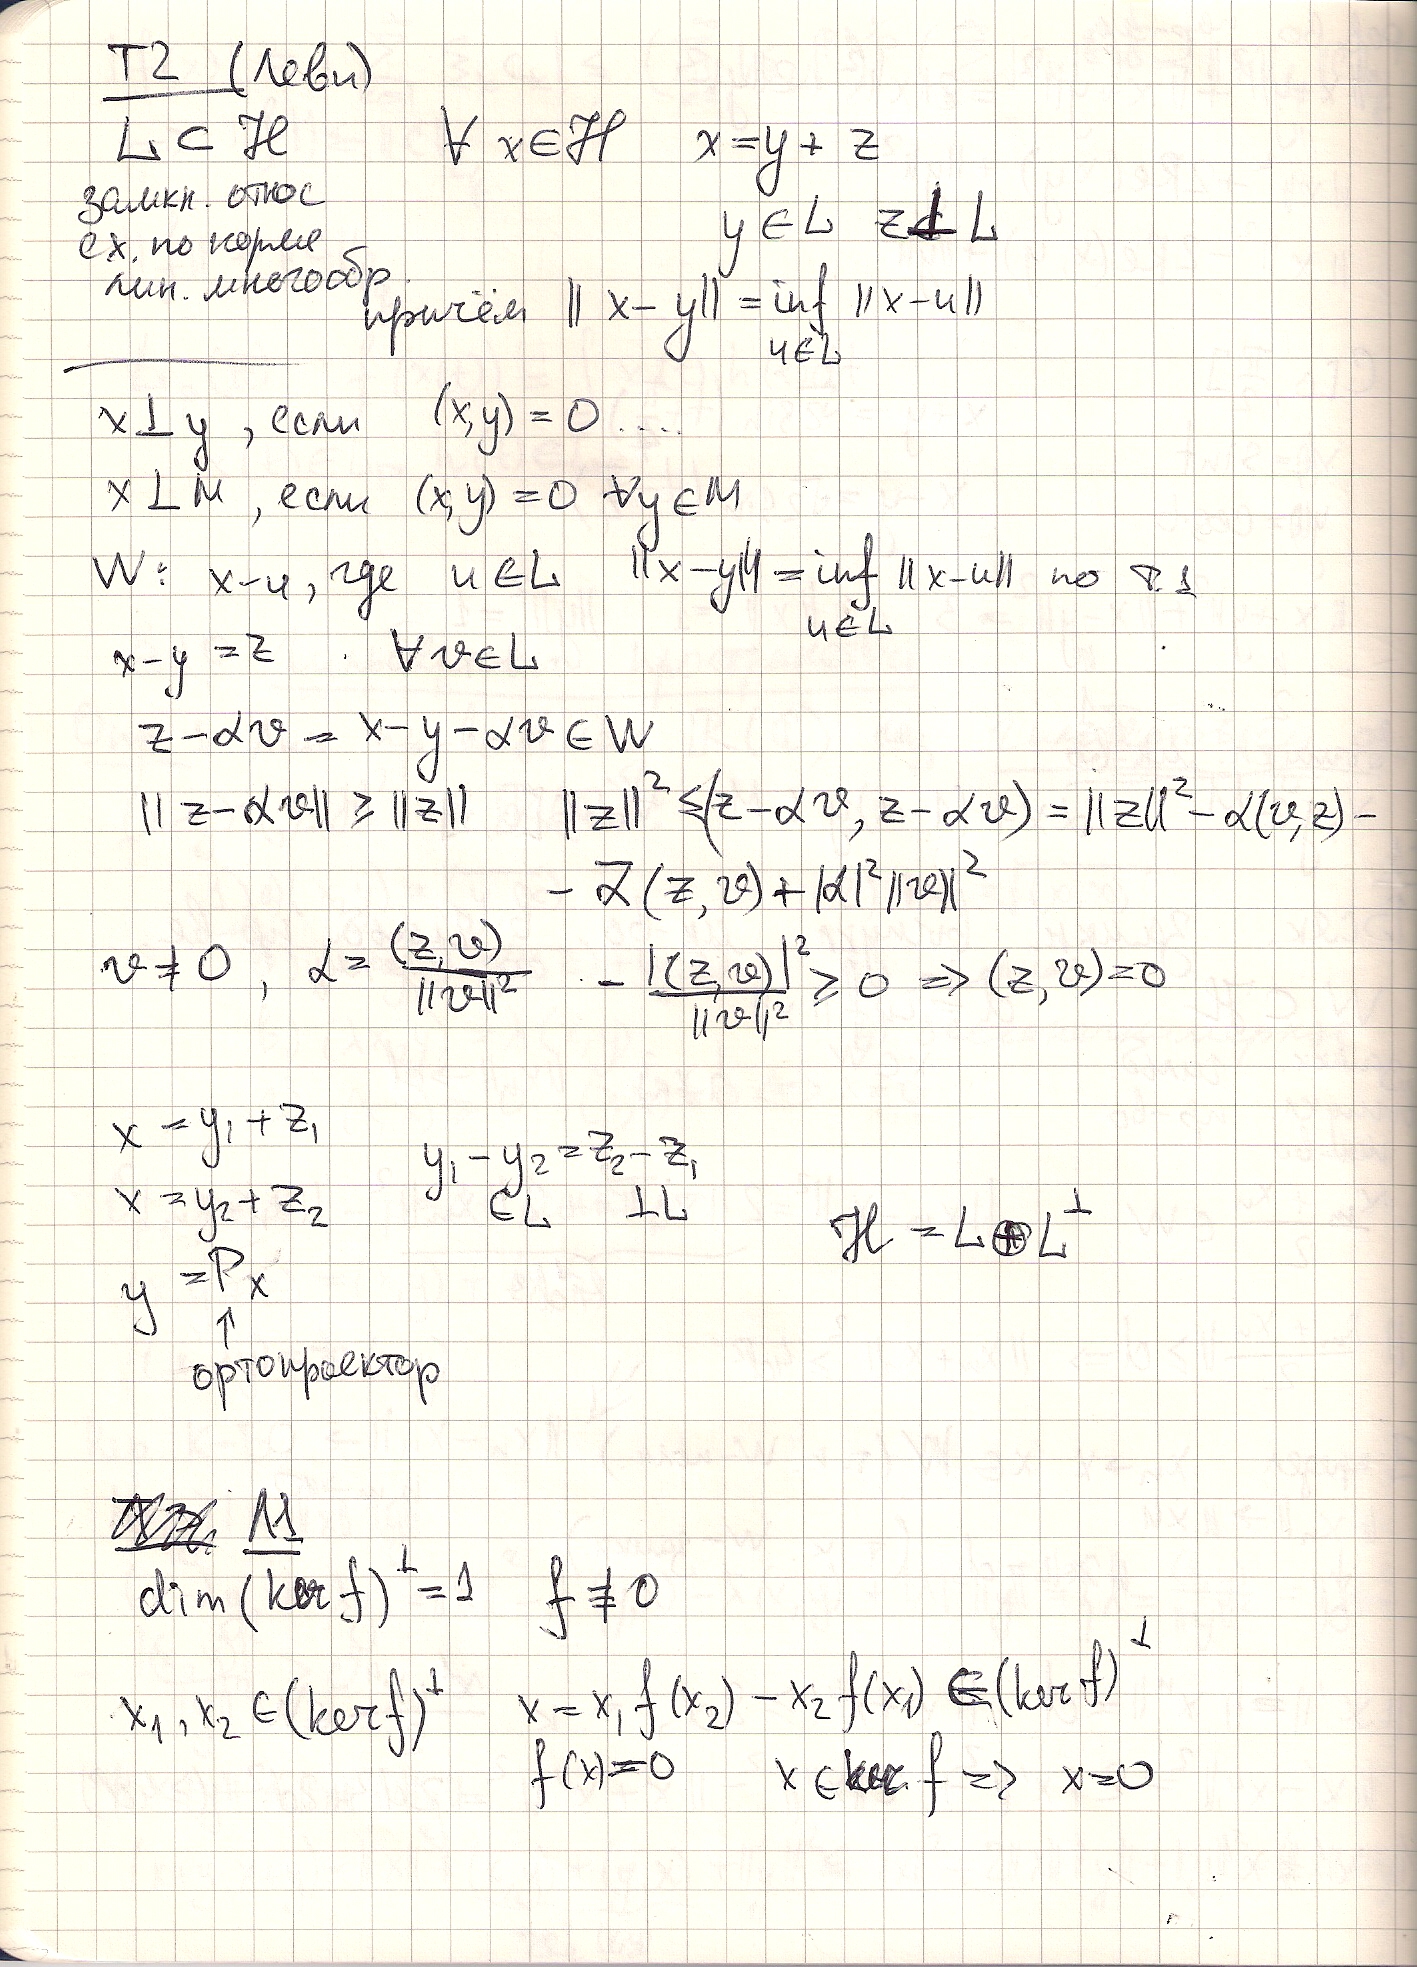 T2 (Леви)
L ⊂ ℋ ∀ x∈ℋ x=y+z
замкн. относ
сх. по норме
лин. многообр.
y∈L z⊥L
причём ||x-y|| = inf ||x-u||
u∈L
x⊥y, если (x,y)=0 ....
x⊥M, если (x,y)=0 ∀y∈M
W: x-u, где u∈L ||x-y|| = inf ||x-u|| по т.1
u∈L
x-y=z . ∀v∈L
z-αv = x-y-αv∈W
||z-αv|| ≥ ||z|| ||z||² ≤ (z-αv, z-αv) = ||z||² - α(v,z) -
- ᾱ(z,v) + |α|²||v||²
v≠0, α = (z,v)/||v||² - |(z,v)|²/||v||² ≥ 0 => (z,v)=0
x = y₁+z₁
y₁-y₂ = z₂-z₁
x = y₂+z₂ ∈L ⊥L
ℋ = L⊕L^⊥
y = Px
↑
ортопроектор
Л1
dim(ker f)^⊥ = 1 f≢0
x₁, x₂ ∈ (ker f)^⊥ x = x₁f(x₂) - x₂f(x₁) ∈ (ker f)^⊥
f(x)=0 x∈ker f => x=0